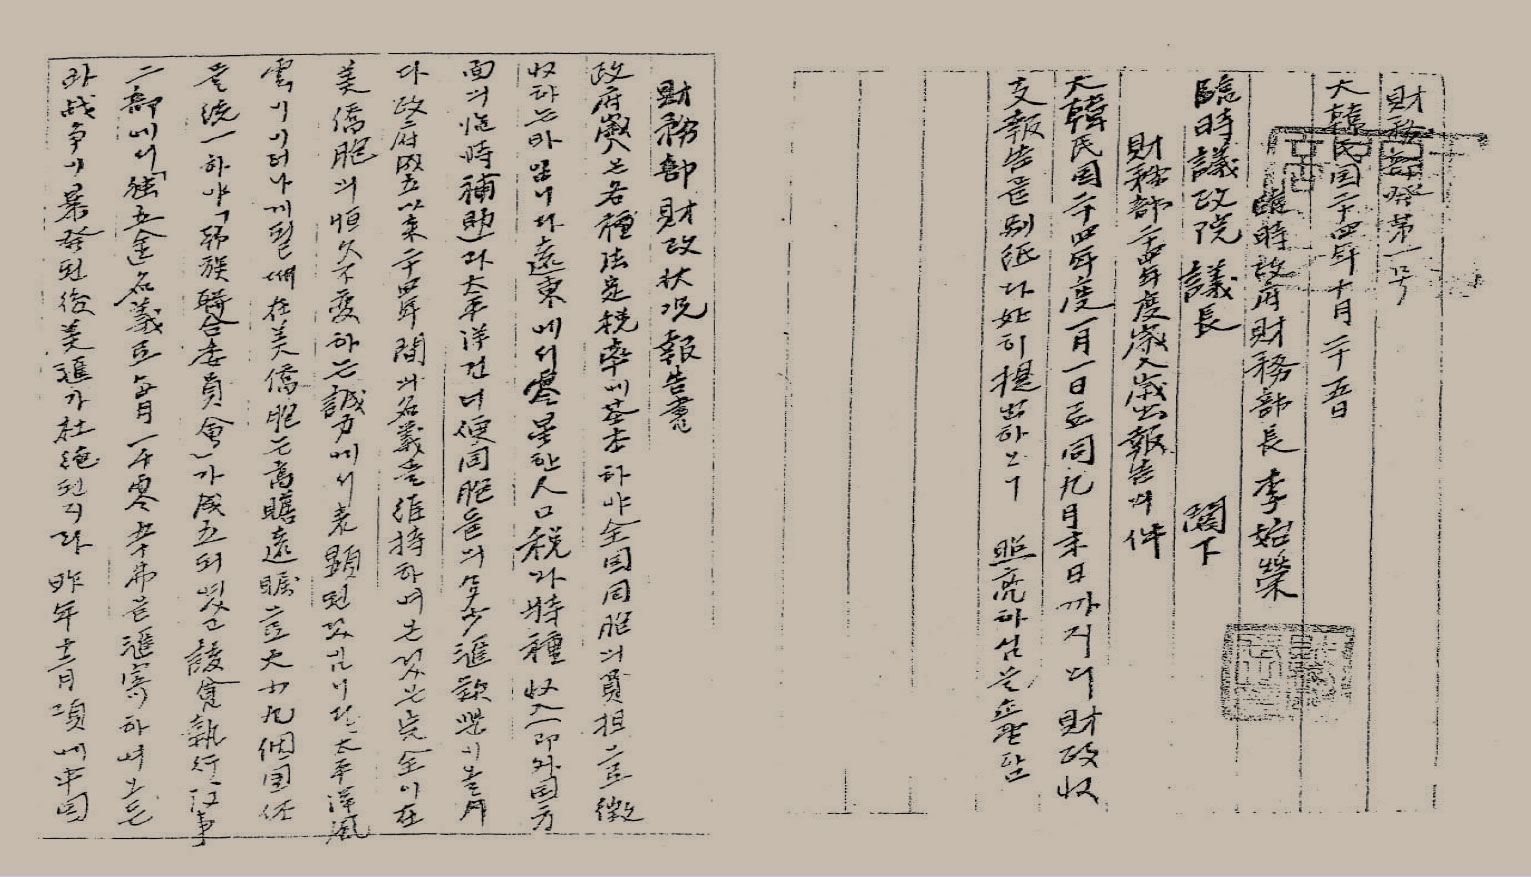 財務部發第一号
大韓民国二十四年十月二十五日
臨時政府財務部長 李始榮
臨時議政院 議長 閣下
財務部二十四年度歲入歲出報告의件
大韓民国二十四年度一月一日로同九月末日까지의 財政収
支報告를別紙다히提出하오니 照亮하심을
財務部財政状况報告書
政府歲入는各種法定税率에基本하야全国同胞의負担으로徴
収하는바입니다遠東에서零星한人口税과特種収入(即外国方
面의臨時補助)과太平洋건너便同胞들의多少滙款
다政府成立以来二十四年間의名義를維持하여온것은完全이在
美僑胞의恒久不変하는誠力에서表顕된것입니다太平洋風
雲이이러나게될때在美僑胞는高瞻遠矚으로九個団体
를統一하야「韓族聯合委員會」가成立되엿고該會執行部
二部에서「独立金」名義로每月一千零五十弗을滙寄하여오든
바战争이暴發된後美滙가杜绝된지라昨年十二月項에中国